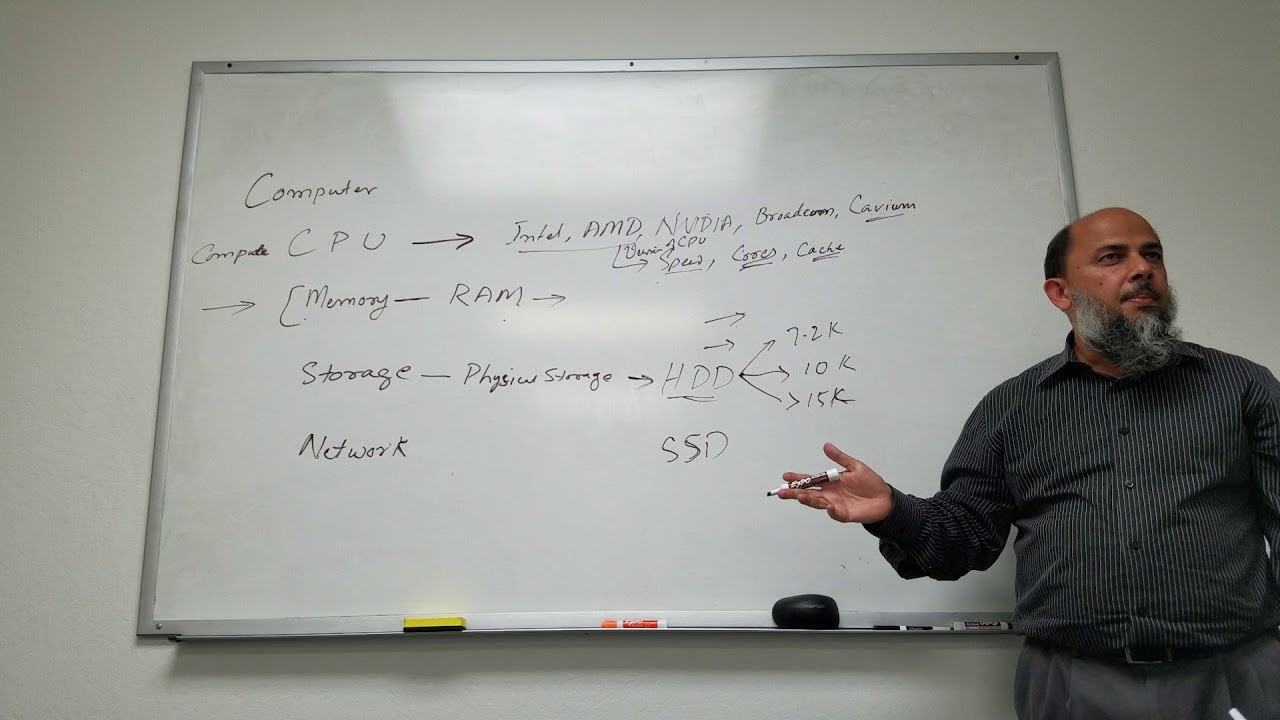 Computer
Compute CPU → Intel, AMD, NVDIA, Broadcom, Cavium
CPU
Speed, Cores, Cache
→ [Memory — RAM →
7.2K
Storage — Physical Storage → HDD → 10K
>15K
Network SSD
EXPO